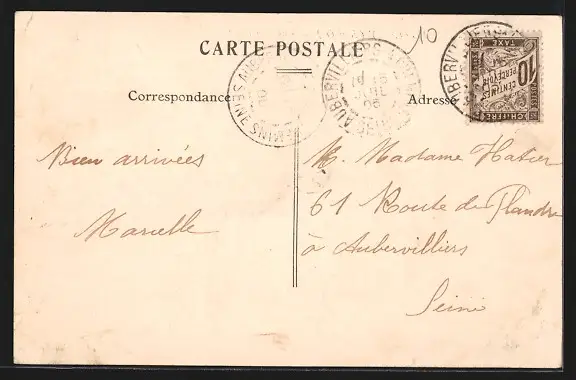 10
CARTE POSTALE
Correspondance
Adresse
AUBERVILLIERS
CHIFFRE
10
CENTIMES
PERCEVOIR
TAXE
POSTES
Bien arrivées
Marcelle
M. Madame Hatier
61 Route de Flandre
à Aubervilliers
Seine